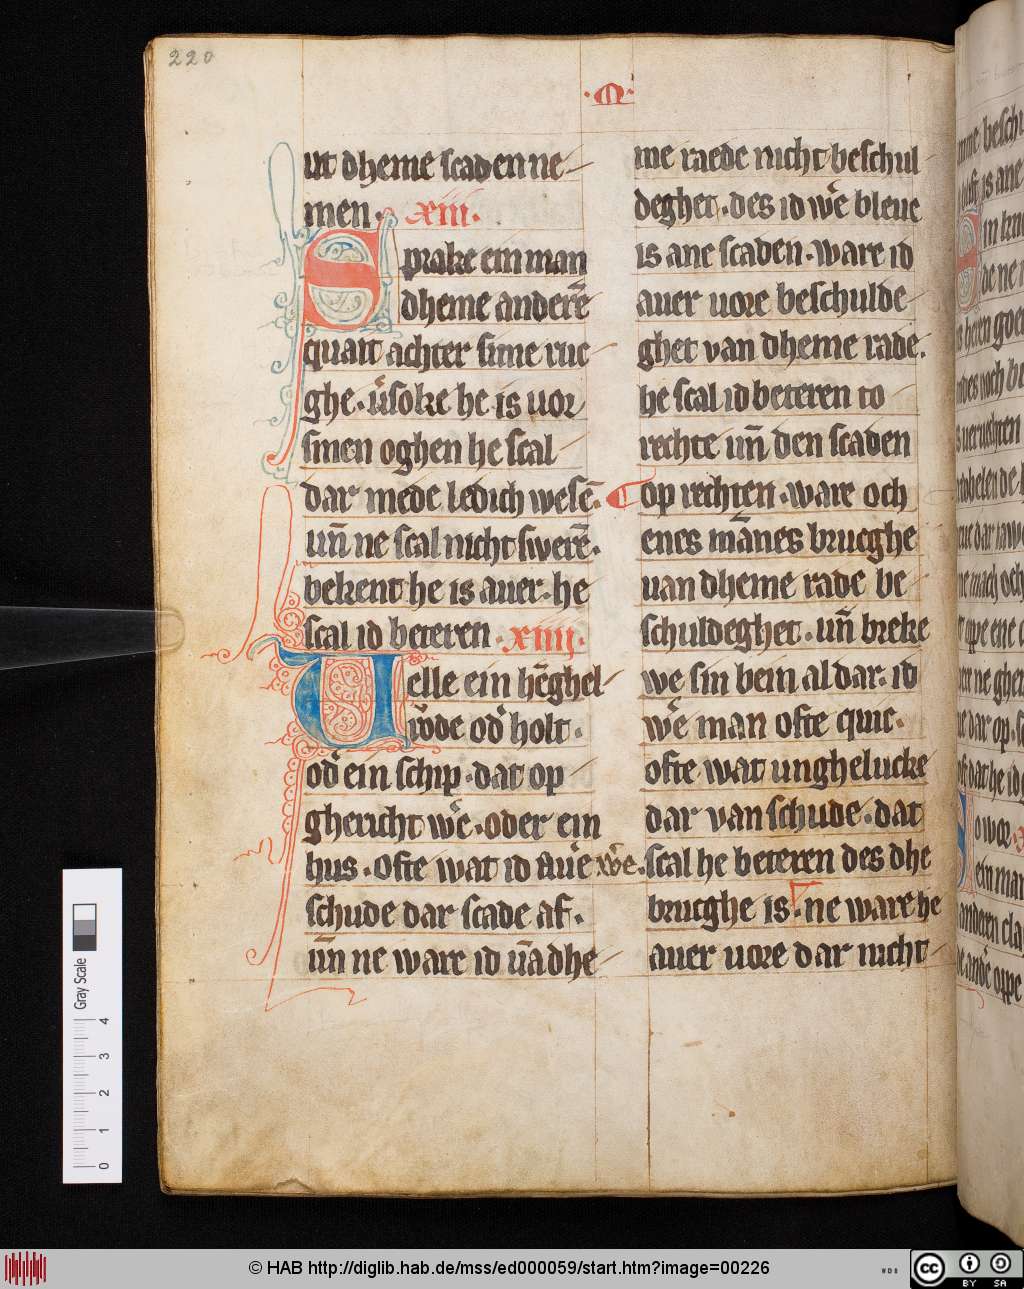 220
·M·
ut dheme scaden ne
men · xiii ·
Sprake ein man
dheme anderē
quait achter sime ruc
ghe · v͛soke he is uor
sinen oghen he scal
dar mede ledich wesē ·
un̄ ne scal nicht swerē ·
bekent he is auer · he
scal id beteren · xiiii ·
Uelle ein hēghel
od͛ holt ·
od͛ ein schip · dat op
ghericht we͛ · oder ein
hus · ofte wat id aue͛ we͛ ·
schude dar scade af ·
un̄ ne ware id uā dhe
me raede nicht beschul
deghet · des id we͛ bleue
is ane scaden · ware id
auer uore beschulde
ghet van dheme rade ·
he scal id beteren to
rechte un̄ den scaden
op rechten · ware och
enes mānes brucghe
uan dheme rade be
schuldeghet · un̄ breke
we sin bein al dar · id
we͛ man ofte quic ·
ofte wat unghelucke
dar van schude · dat
scal he beteren des dhe
brucghe is · ne ware he
auer uore dar nicht
Gray Scale
0 1 2 3 4
© HAB http://diglib.hab.de/mss/ed000059/start.htm?image=00226
WDB
cc BY SA